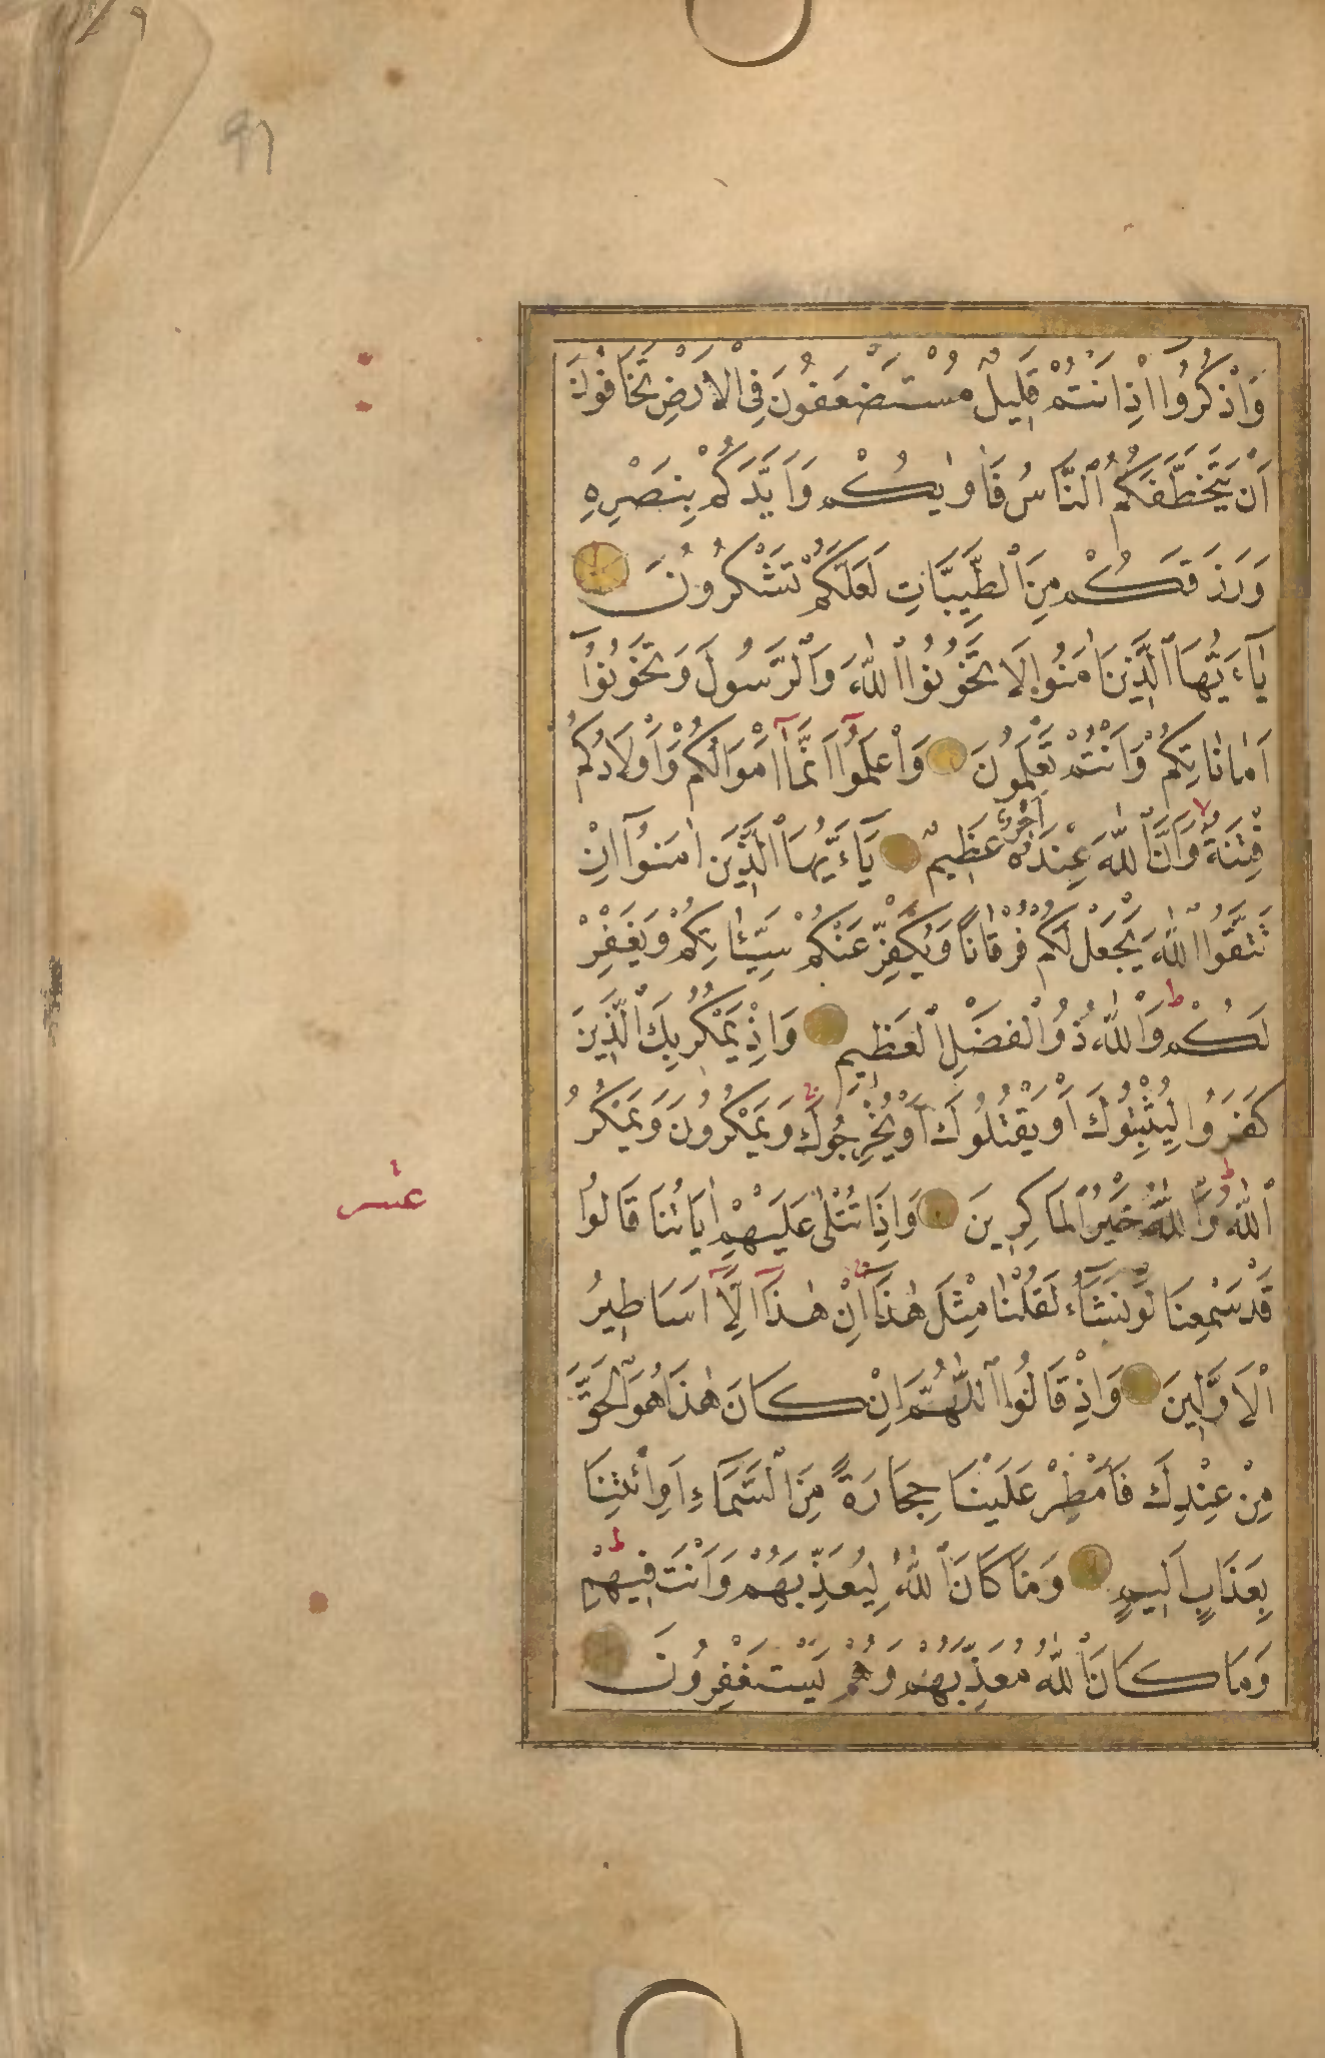 ٩١
وَاذْكُرُوا اِذْ اَنْتُمْ قَلِيلٌ مُسْتَضْعَفُونَ فِى الْاَرْضِ تَخَافُونَ
اَنْ يَتَخَطَّفَكُمُ النَّاسُ فَاٰوٰيكُمْ وَاَيَّدَكُمْ بِنَصْرِهِ
وَرَزَقَكُمْ مِنَ الطَّيِّبَاتِ لَعَلَّكُمْ تَشْكُرُونَ
يَٓاءَيُّهَا الَّذِينَ اٰمَنُوا لَا تَخُونُوا اللّٰهَ وَالرَّسُولَ وَتَخُونُٓوا
اَمَانَاتِكُمْ وَاَنْتُمْ تَعْلَمُونَ وَاعْلَمُٓوا اَنَّمَٓا اَمْوَالُكُمْ وَاَوْلَادُكُمْ
فِتْنَةٌ وَاَنَّ اللّٰهَ عِنْدَهُ اَجْرٌ عَظِيمٌ يَٓاءَيُّهَا الَّذِينَ اٰمَنُٓوا اِنْ
تَتَّقُوا اللّٰهَ يَجْعَلْ لَكُمْ فُرْقَانًا وَيُكَفِّرْ عَنْكُمْ سَيِّئَاتِكُمْ وَيَغْفِرْ
لَكُمْ ط وَاللّٰهُ ذُو الْفَضْلِ الْعَظِيمِ وَاِذْ يَمْكُرُ بِكَ الَّذِينَ
كَفَرُوا لِيُثْبِتُوكَ اَوْ يَقْتُلُوكَ اَوْ يُخْرِجُوكَ وَيَمْكُرُونَ وَيَمْكُرُ
اللّٰهُ ط وَاللّٰهُ خَيْرُ الْمَاكِرِينَ وَاِذَا تُتْلٰى عَلَيْهِمْ اٰيَاتُنَا قَالُوا
عشر
قَدْ سَمِعْنَا لَوْ نَشَٓاءُ لَقُلْنَا مِثْلَ هٰذَٓا اِنْ هٰذَٓا اِلَّٓا اَسَاطِيرُ
الْاَوَّلِينَ وَاِذْ قَالُوا اللّٰهُمَّ اِنْ كَانَ هٰذَا هُوَ الْحَقَّ
مِنْ عِنْدِكَ فَاَمْطِرْ عَلَيْنَا حِجَارَةً مِنَ السَّمَٓاءِ اَوِ ائْتِنَا
بِعَذَابٍ اَلِيمٍ وَمَا كَانَ اللّٰهُ لِيُعَذِّبَهُمْ وَاَنْتَ فِيهِمْ ط
وَمَا كَانَ اللّٰهُ مُعَذِّبَهُمْ وَهُمْ يَسْتَغْفِرُونَ